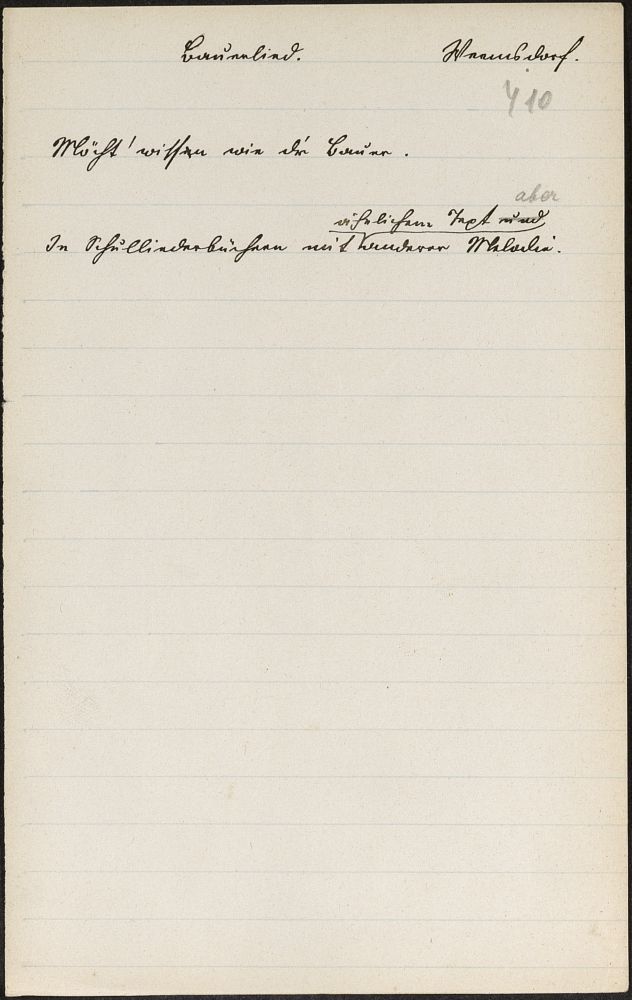 Bauerlied. Wermsdorf.
410
Möcht' wissen wie d'r Bauer.
aber
ähnlichem Text und
In Schulliederbüchern mit anderer Melodie.